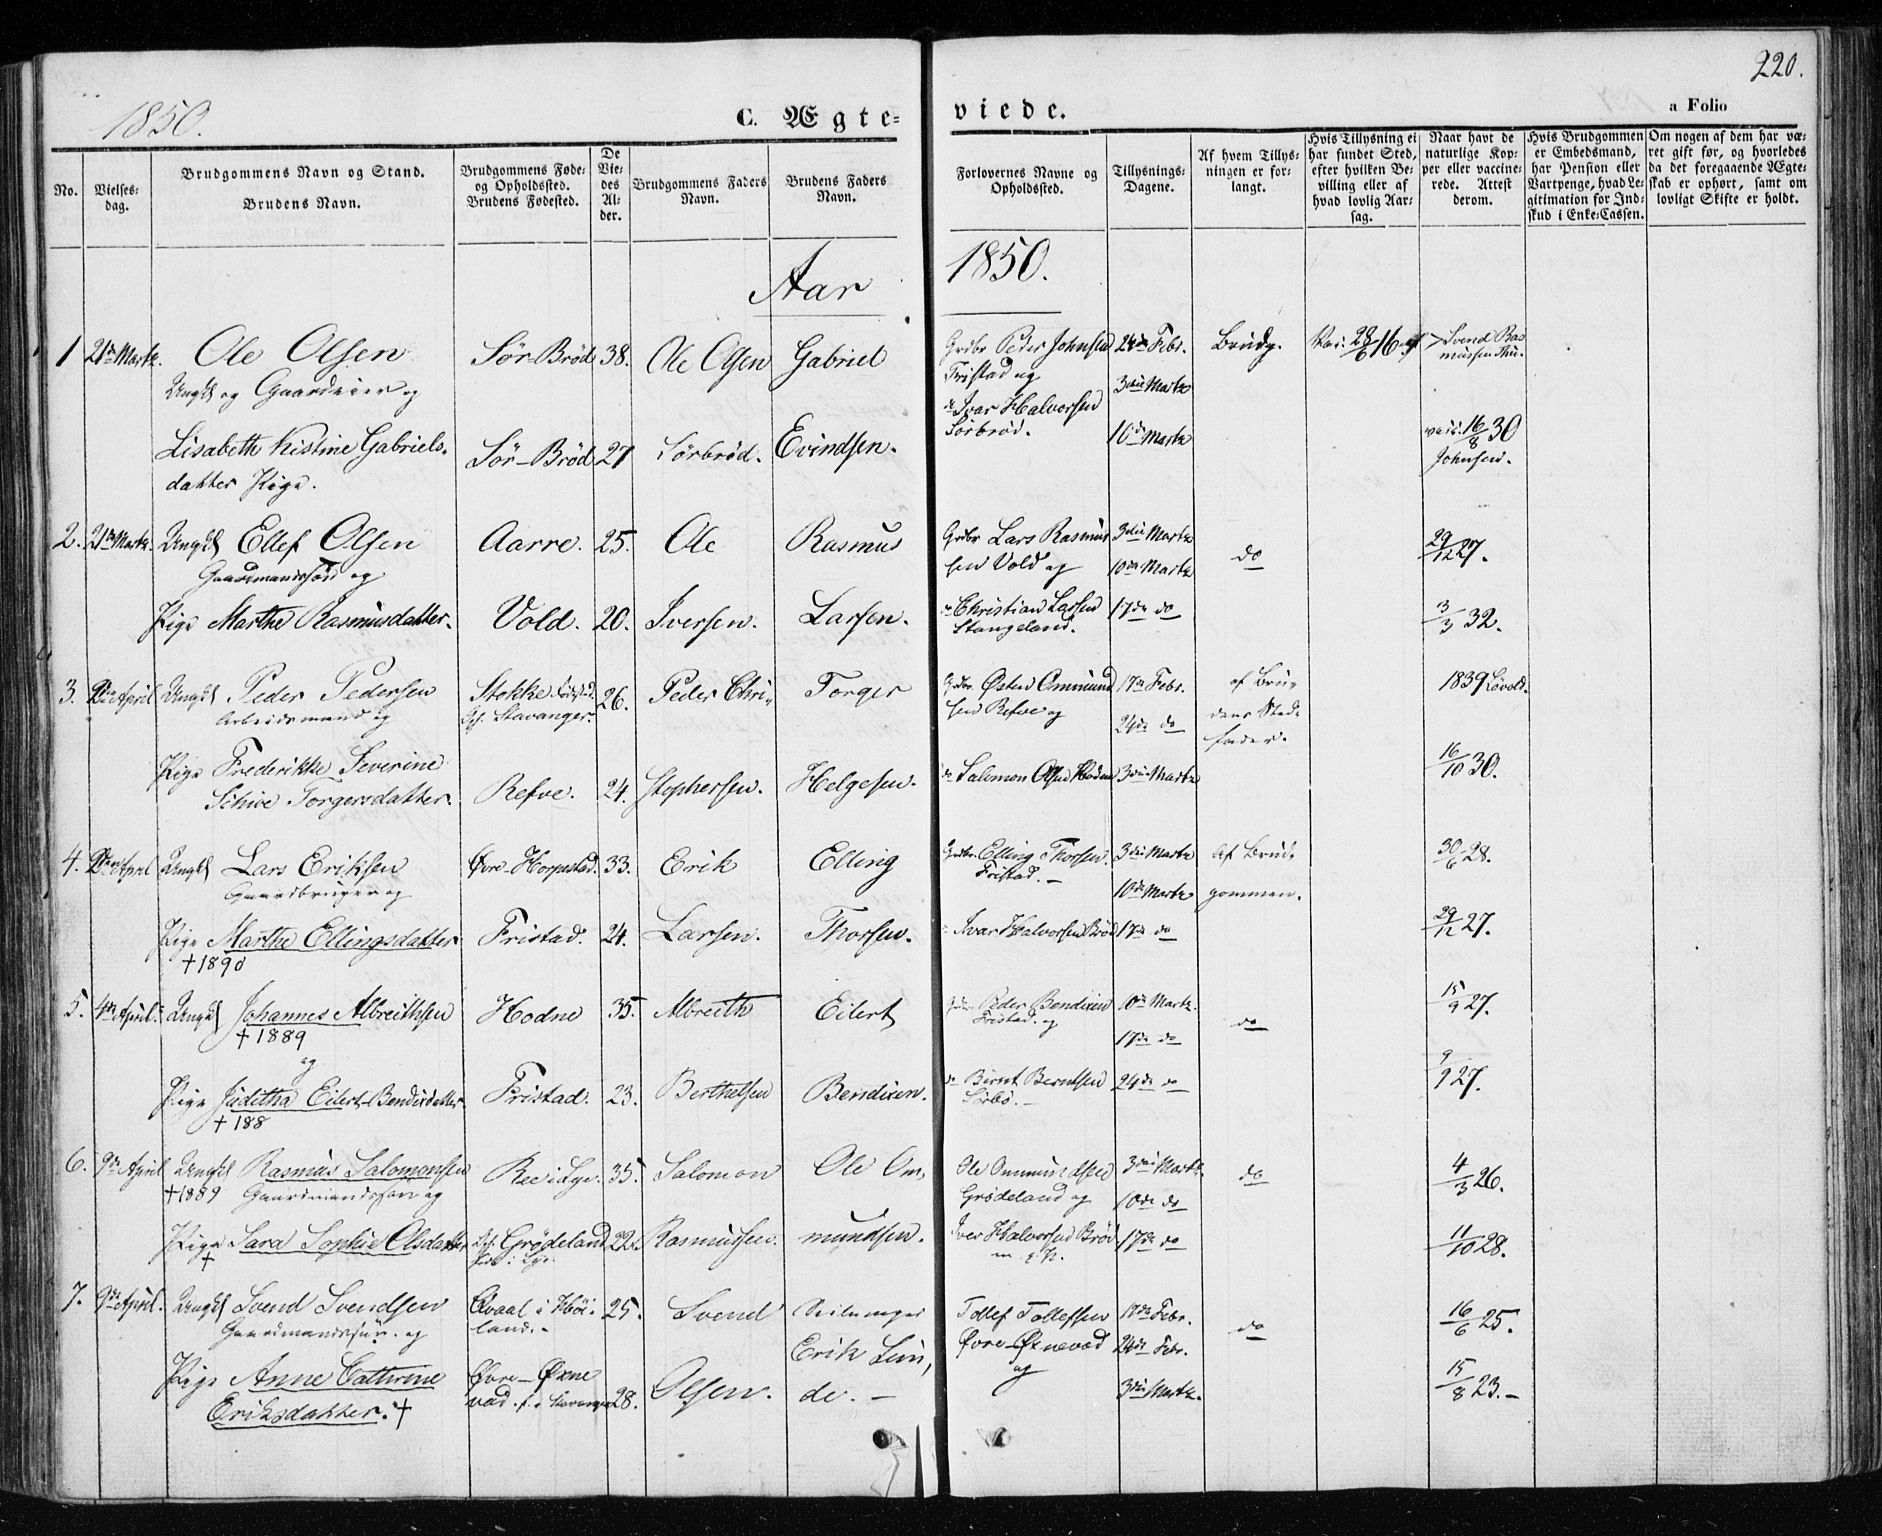 220.
1850.
C. Ægte=
viede.
a Folio
No.
Vielses=
dag.
Brudgommens Navn og Stand.
Brudens Navn.
Brudgommens Føde=
og Opholdssted.
Brudens Fødested.
De
Vie=
des
Al=
der.
Brudgommens Faders
Navn.
Brudens Faders
Navn.
Forlovernes Navne og
Opholdssted.
Tillysnings=
Dagene.
Af hvem Tillys=
ningen er for=
langt.
Hvis Tillysning ei
har fundet Sted,
efter hvilken Be=
villing eller af
hvad lovlig Aar=
sag.
Naar havt de
naturlige Kop=
per eller vaccine=
rede. Attest
derom.
Hvis Brudgommen
er Embedsmand,
har Pension eller
Vartpenge, hvad Le=
gitimation for Ind=
skud i Enke=Cassen.
Om nogen af dem har væ=
ret gift før, og hvorledes
da det foregaaende Ægte=
skab er ophørt, samt om
lovligt Skifte er holdt.
Aar 1850.
1 21de Marts. Ole Olsen Sør-Brød 38. Ole Olsen Gabriel Grdbr Peder Johnsen 24de Febr. Brudg. 28/6 16 Svend Ras
Ungk og Gaardeier og Fristad og 3die Marts mussen
Lisabeth Kistine Gabriels- Sør-Brød 27 Sørbrød. Evindsen. do Ivar Halvorsen 10de Marts vacc. 16/8 30
datter Pige. Sørbrød. Johnsen.
2. 21de Marts. Ungk Ellef Olsen Aarre. 25. Ole Rasmus Grdbr Lars Rasmus 3die Marts do 29/12 27.
Gaardmandssøn og sen Vold og 10de Marts
Pige Marthe Rasmusdatter. Vold. 20. Iversen. Larsen. do Christian Larsen 17de do 3/3 32.
Stangeland.
3. 2den April Ungk Peder Pedersen Stokke 26. Peder Chri- Torger Grdbr Østen Ommund 17de Febr. af Bru- 1839 Løvold.
Arbeidsmand og Stavanger. sen Refve og 24de do dens Sted-
fader.
Pige Frederikke Severine Refve. 24. stophersen. Helgesen. do Salomon Olsen Hodne 3die Marts 16/10 30.
Schive Torgersdatter.
4. 2den April Ungk Lars Eriksen Øvre-Horpestad. 33. Erik Elling Grdbr Elling Thorsen 3die Marts Af Brud- 30/6 28.
Gaardbruger og Fristad.- 10de Marts gommen.
Pige Marthe Ellingsdatter Fristad. 24. Larsen. Thorsen. Ivar Halvorsen Brød 17de do 29/12 27.
†1890
5. 4de April. Ungk Johannes Albreithsen Hodne 35. Albreith Eilert Peder Bendixen 10de Marts. do 15/9 27.
†1889 Fristad. og 17de do
og
Pige Juditha Eilert-Bendixdatter Fristad. 23. Berthelsen Bendixen. do Bernt Berntsen 24de do 9/9 27.
†188 Sørbø.-
6. 9de April Ungk Rasmus Salomonsen 35. Salomon Ole Om- Ole Ommundsen 3die Marts do 4/3 26.
†1889 Gaardmandssøn og Grødeland og 10de do
Pige Sara Sophie Olsdatter Grødeland 22. Rasmussen. mundsen. Iver Halvorsen Brød 17de do 11/10 28.
†
7. 9de April. Ungk Svend Svendsen Qvaal i Høi- 25. Svend Tollef Tollefsen 17de Febr. do 16/6 25.
Gaardmandssøn og land.- Erik Lun- Øvre-Øxnevad 24de Febr.
Pige Anne Cathrine Øvre-Øxne og
Eriksdatter. † vad 28. Olsen. de.- 3die Marts. 15/8 23.-